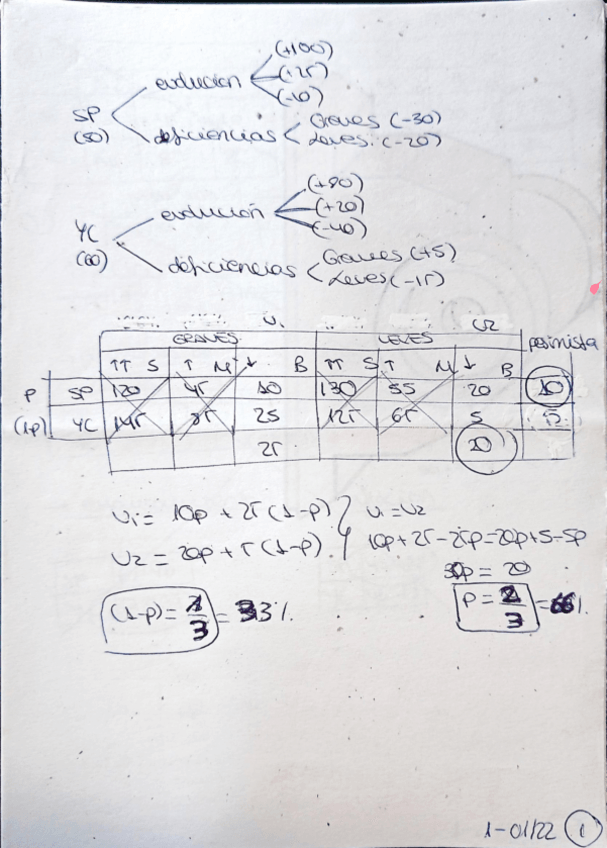 (+100)
evolución (+25)
(-10)
SP
(50) deficiencias Graves (-30)
Leves. (-20)
(+90)
evolución (+20)
(-40)
YC
(60) Graves (+5)
deficiencias Leves (-15)
U1 U2
GRAVES LEVES pesimista
↑↑ S ↑ M ↓ B ↑↑ S ↑ M ↓ B
P SP 120 45 10 130 55 20 10
(1-p) YC 145 75 25 125 65 5
25 20
U1 = 10p + 25(1-p) U1 = U2
U2 = 20p + 5(1-p) 10p + 25 - 25p = 20p + 5 - 5p
30p = 20
(1-p) = 1/3 = 33% P = 2/3 = 66%
1-01/22 1